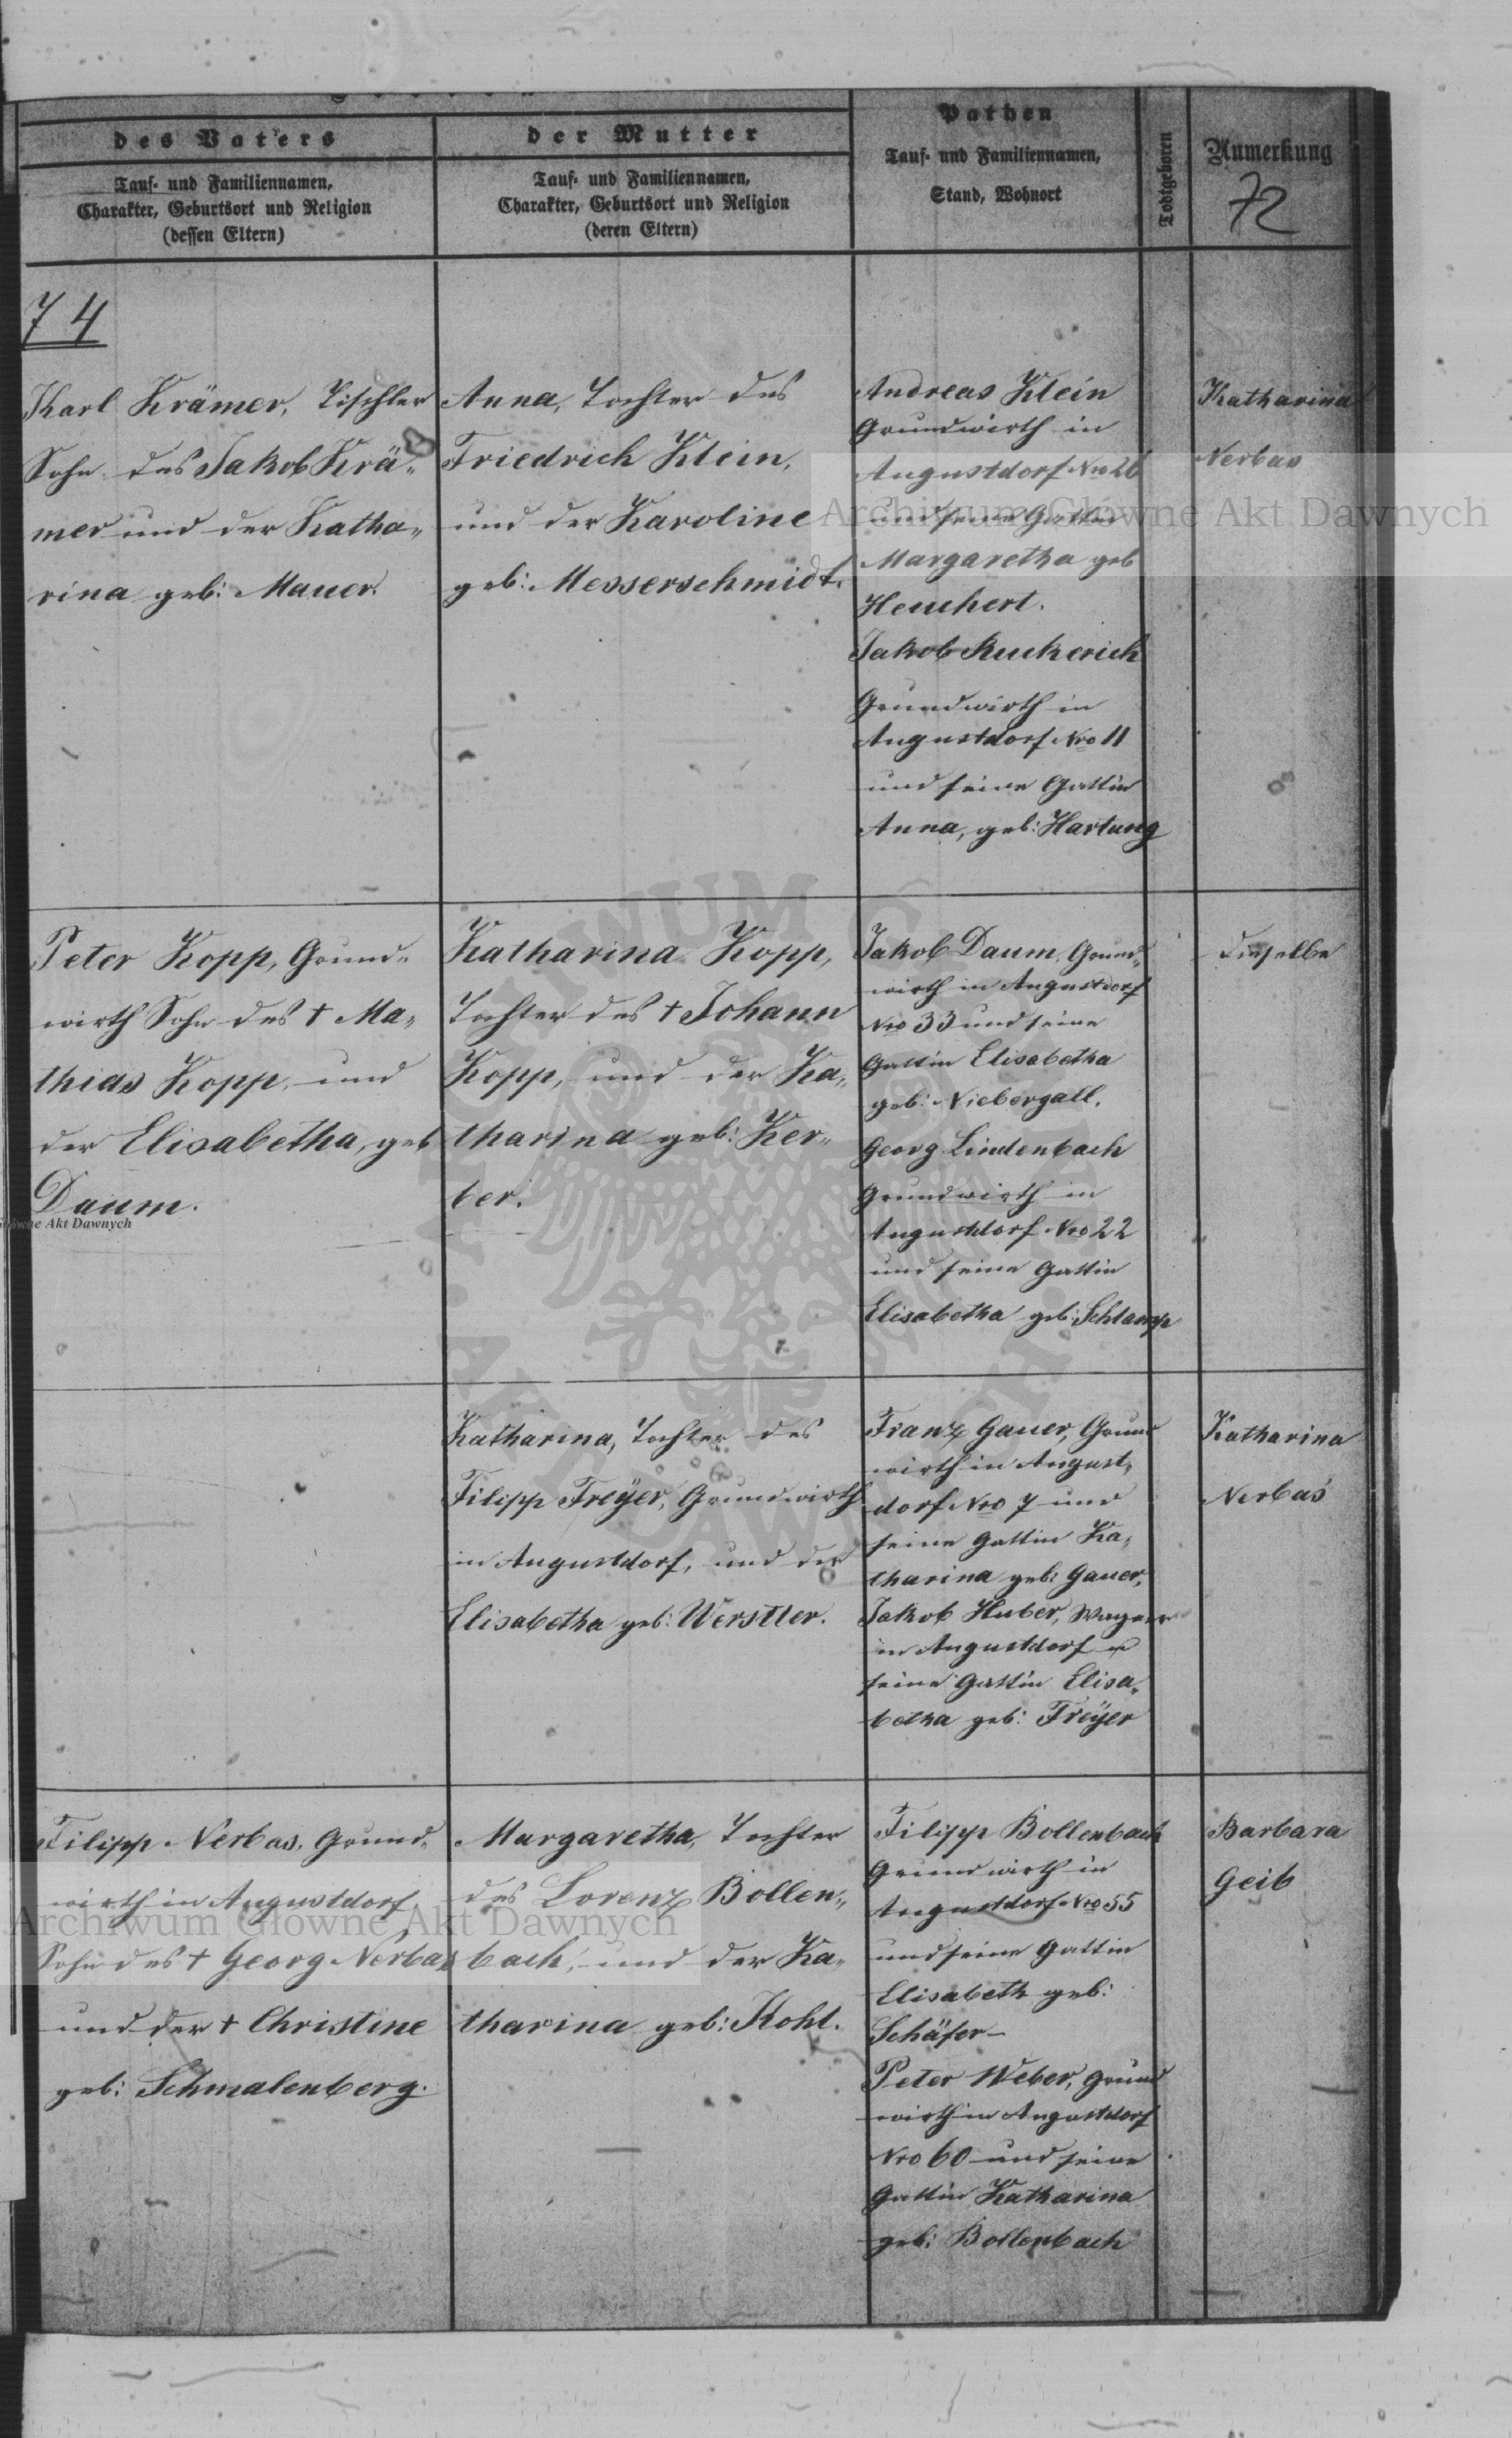 des Vaters
Tauf- und Familiennamen,
Charakter, Geburtsort und Religion
(dessen Eltern)
der Mutter
Tauf- und Familiennamen,
Charakter, Geburtsort und Religion
(deren Eltern)
Pathen
Tauf- und Familiennamen,
Stand, Wohnort
Todtgeboren
Anmerkung
72
74
Karl Krämer, Tischler
Sohn des Jakob Krä„
mer und der Katha„
rina geb: Mauer.
Anna, Tochter des
Friedrich Klein,
und der Karoline
geb: Messerschmidt.
Andreas Klein
Grundwirth in
Augustdorf Nro 26
und seine Gattin
Margaretha geb
Heuchert.
Jakob Ruckerich
Grundwirth in
Augustdorf Nro 11
und seine Gattin
Anna, geb: Hartung
Katharina
Nerbas
Peter Kopp, Grund„
wirth Sohn des † Ma„
thias Kopp, und
der Elisabetha, geb
Daum.
Katharina Kopp,
Tochter des † Johann
Kopp, und der Ka„
tharina geb: Ker„
ber.
Jakob Daum, Grund„
wirth in Augustdorf
Nro 33 und seine
Gattin Elisabetha
geb: Niebergall.
Georg Lindenbach
Grundwirth in
Augustdorf Nro 22
und seine Gattin
Elisabetha geb: Schlamp
Dieselbe
Katharina, Tochter des
Filipp Freÿer, Grundwirth
in Augustdorf, und der
Elisabetha geb: Werstler.
Franz Gauer, Grund
wirth in August„
dorf Nro 7 und
seine Gattin Ka„
tharina geb: Gauer,
Jakob Huber, Wagner
in Augustdorf u
seine Gattin Elisa„
betha geb: Freÿer
Katharina
Nerbas
Filipp Nerbas, Grund„
wirth in Augustdorf
Sohn des † Georg Nerbas
und der † Christine
geb: Schmalenberg.
Margaretha, Tochter
des Lorenz Bollen„
bach, und der Ka„
tharina geb: Kohl.
Filipp Bollenbach
Grundwirth in
Augustdorf Nro 55
und seine Gattin
Elisabeth geb:
Schäfer
Peter Weber, Grund
wirth in Augustdorf
Nro 60 und seine
Gattin Katharina
geb: Bollenbach
Barbara
Geib
Archiwum Główne Akt Dawnych
Główne Akt Dawnych
Archiwum Główne Akt Dawnych